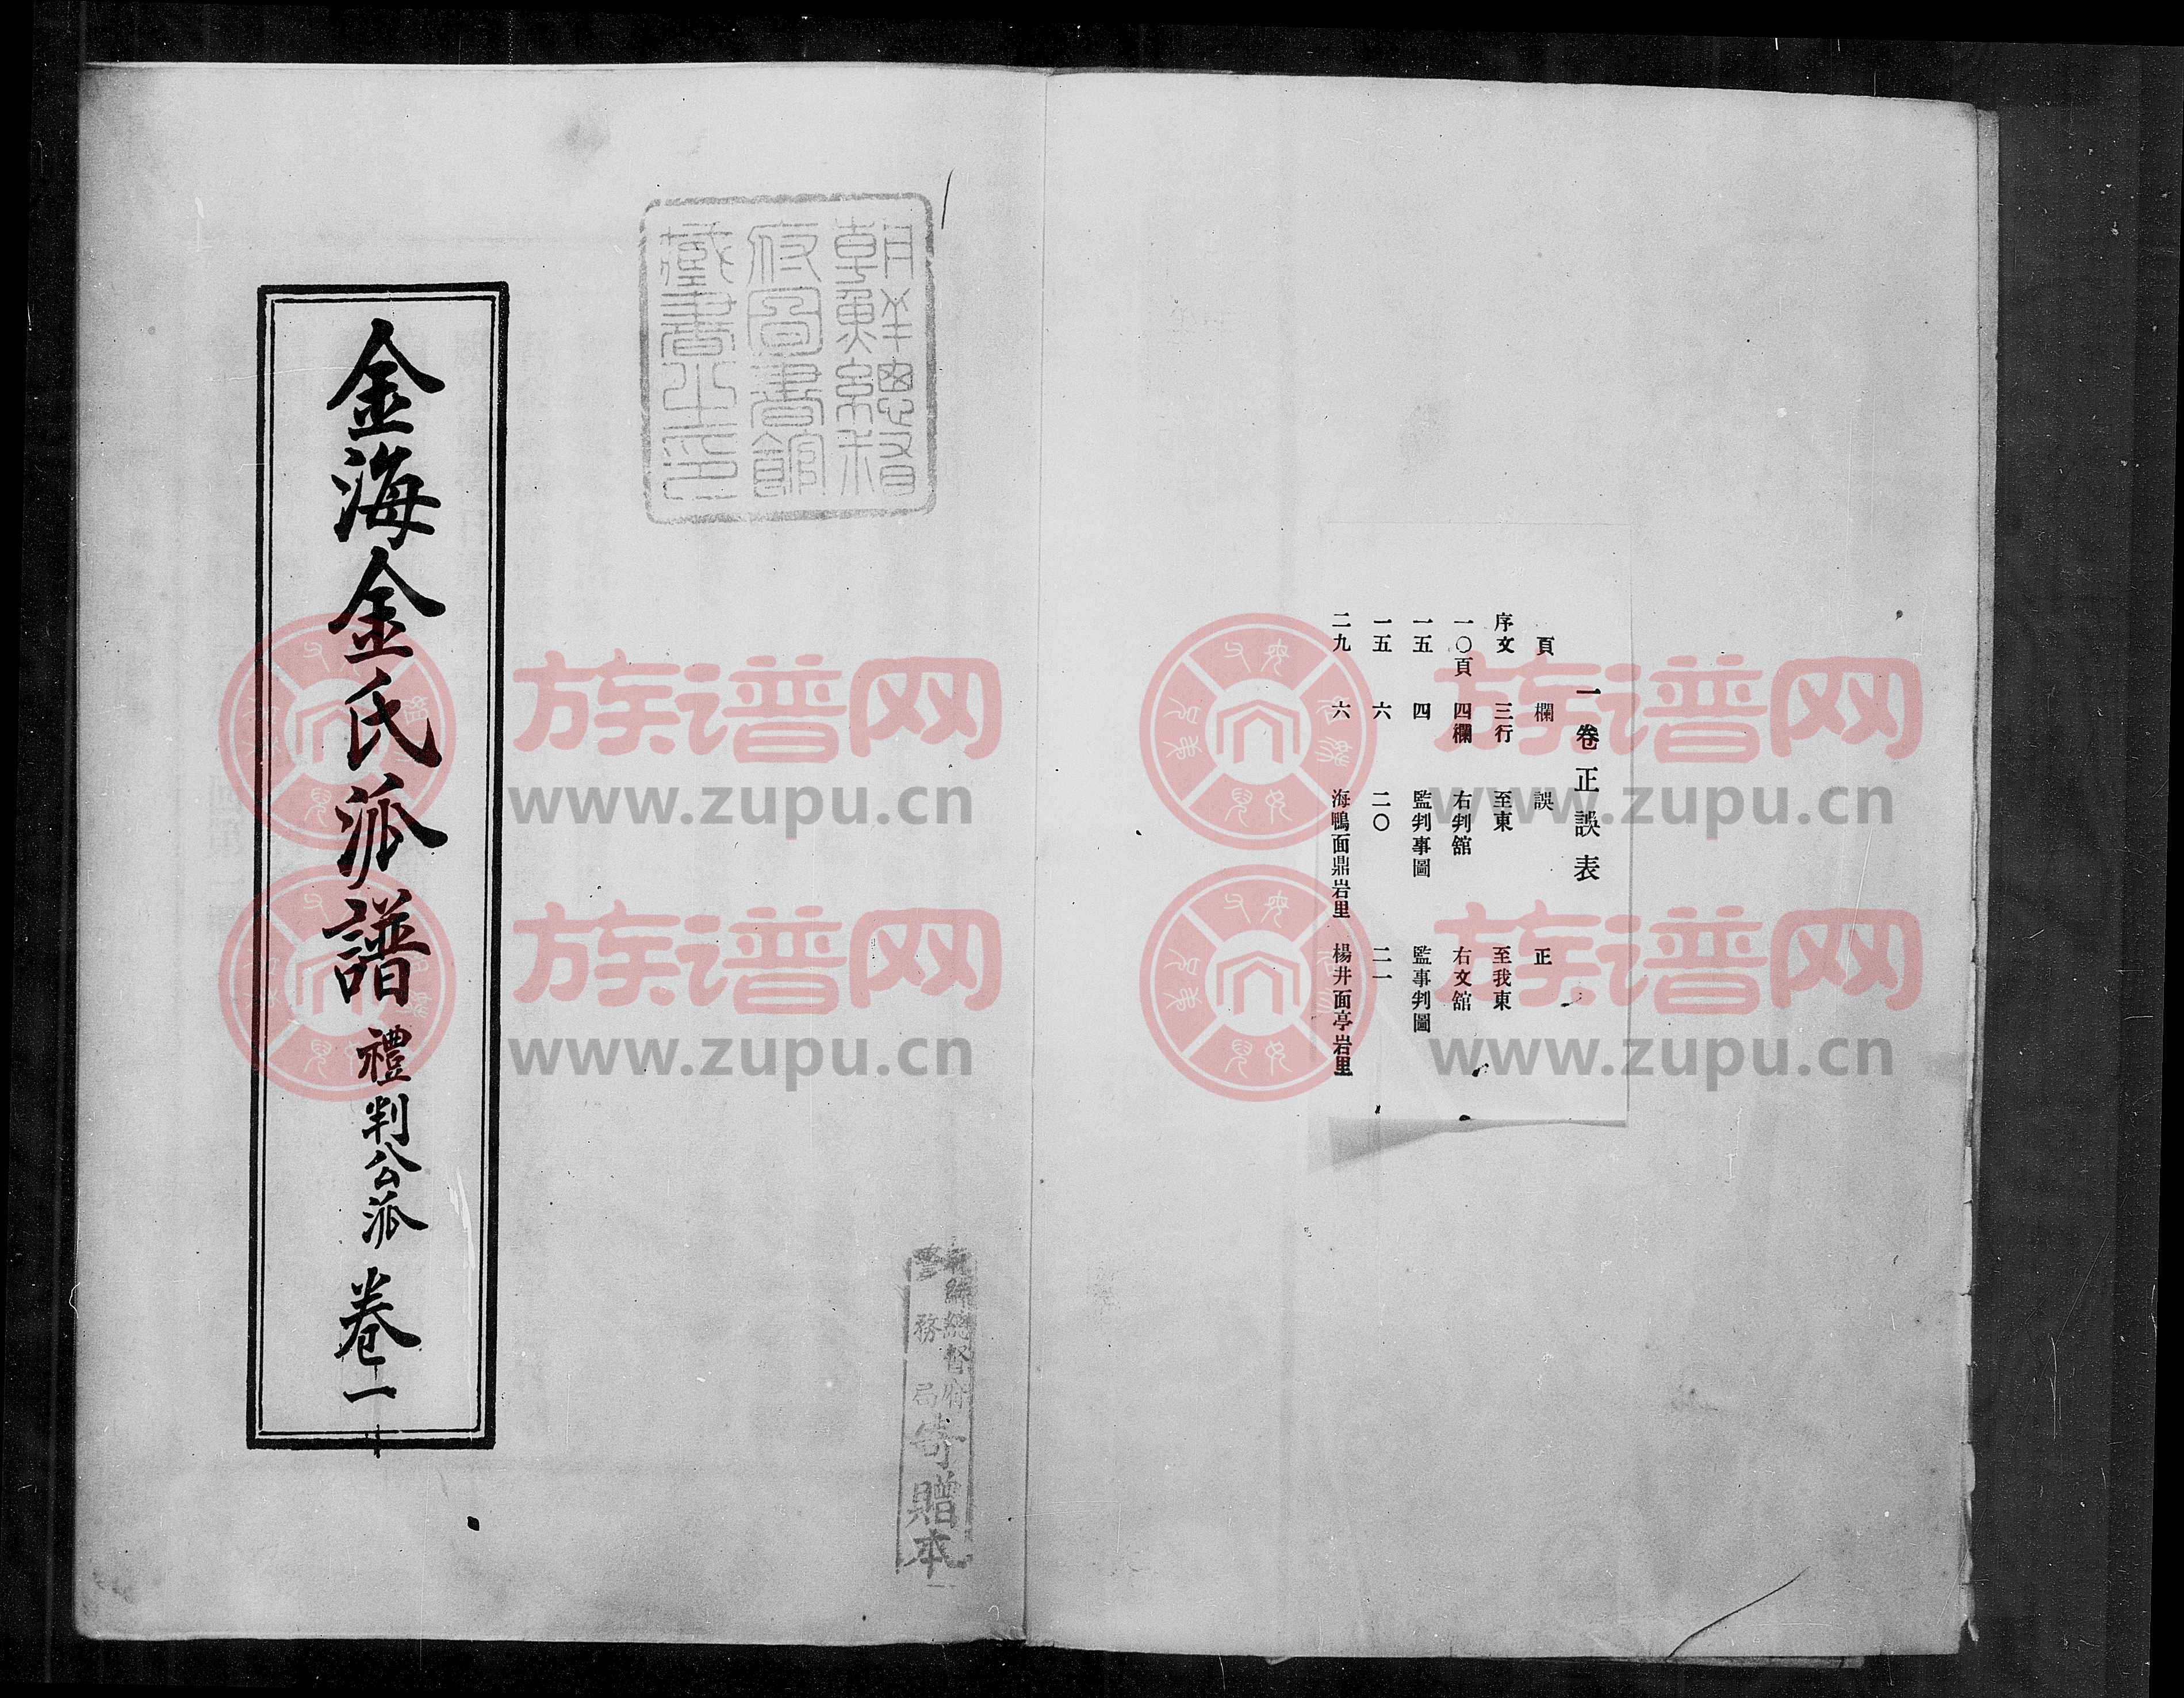 一卷正誤表
頁 欄 誤 正
序文 三行 至東 至我東
一〇頁 四欄 右判舘 右文舘
一五 四 監判事圖 監事判圖
一五 六 二〇 二一
二九 六 海鴨面鼎岩里 楊井面亭岩里
朝鮮總督
府圖書館
藏書之印
朝鮮總督府
務局
寄贈本
金海金氏派譜 禮判公派 卷一
族谱网
www.zupu.cn
族谱网
www.zupu.cn
族谱网
www.zupu.cn
族谱网
www.zupu.cn